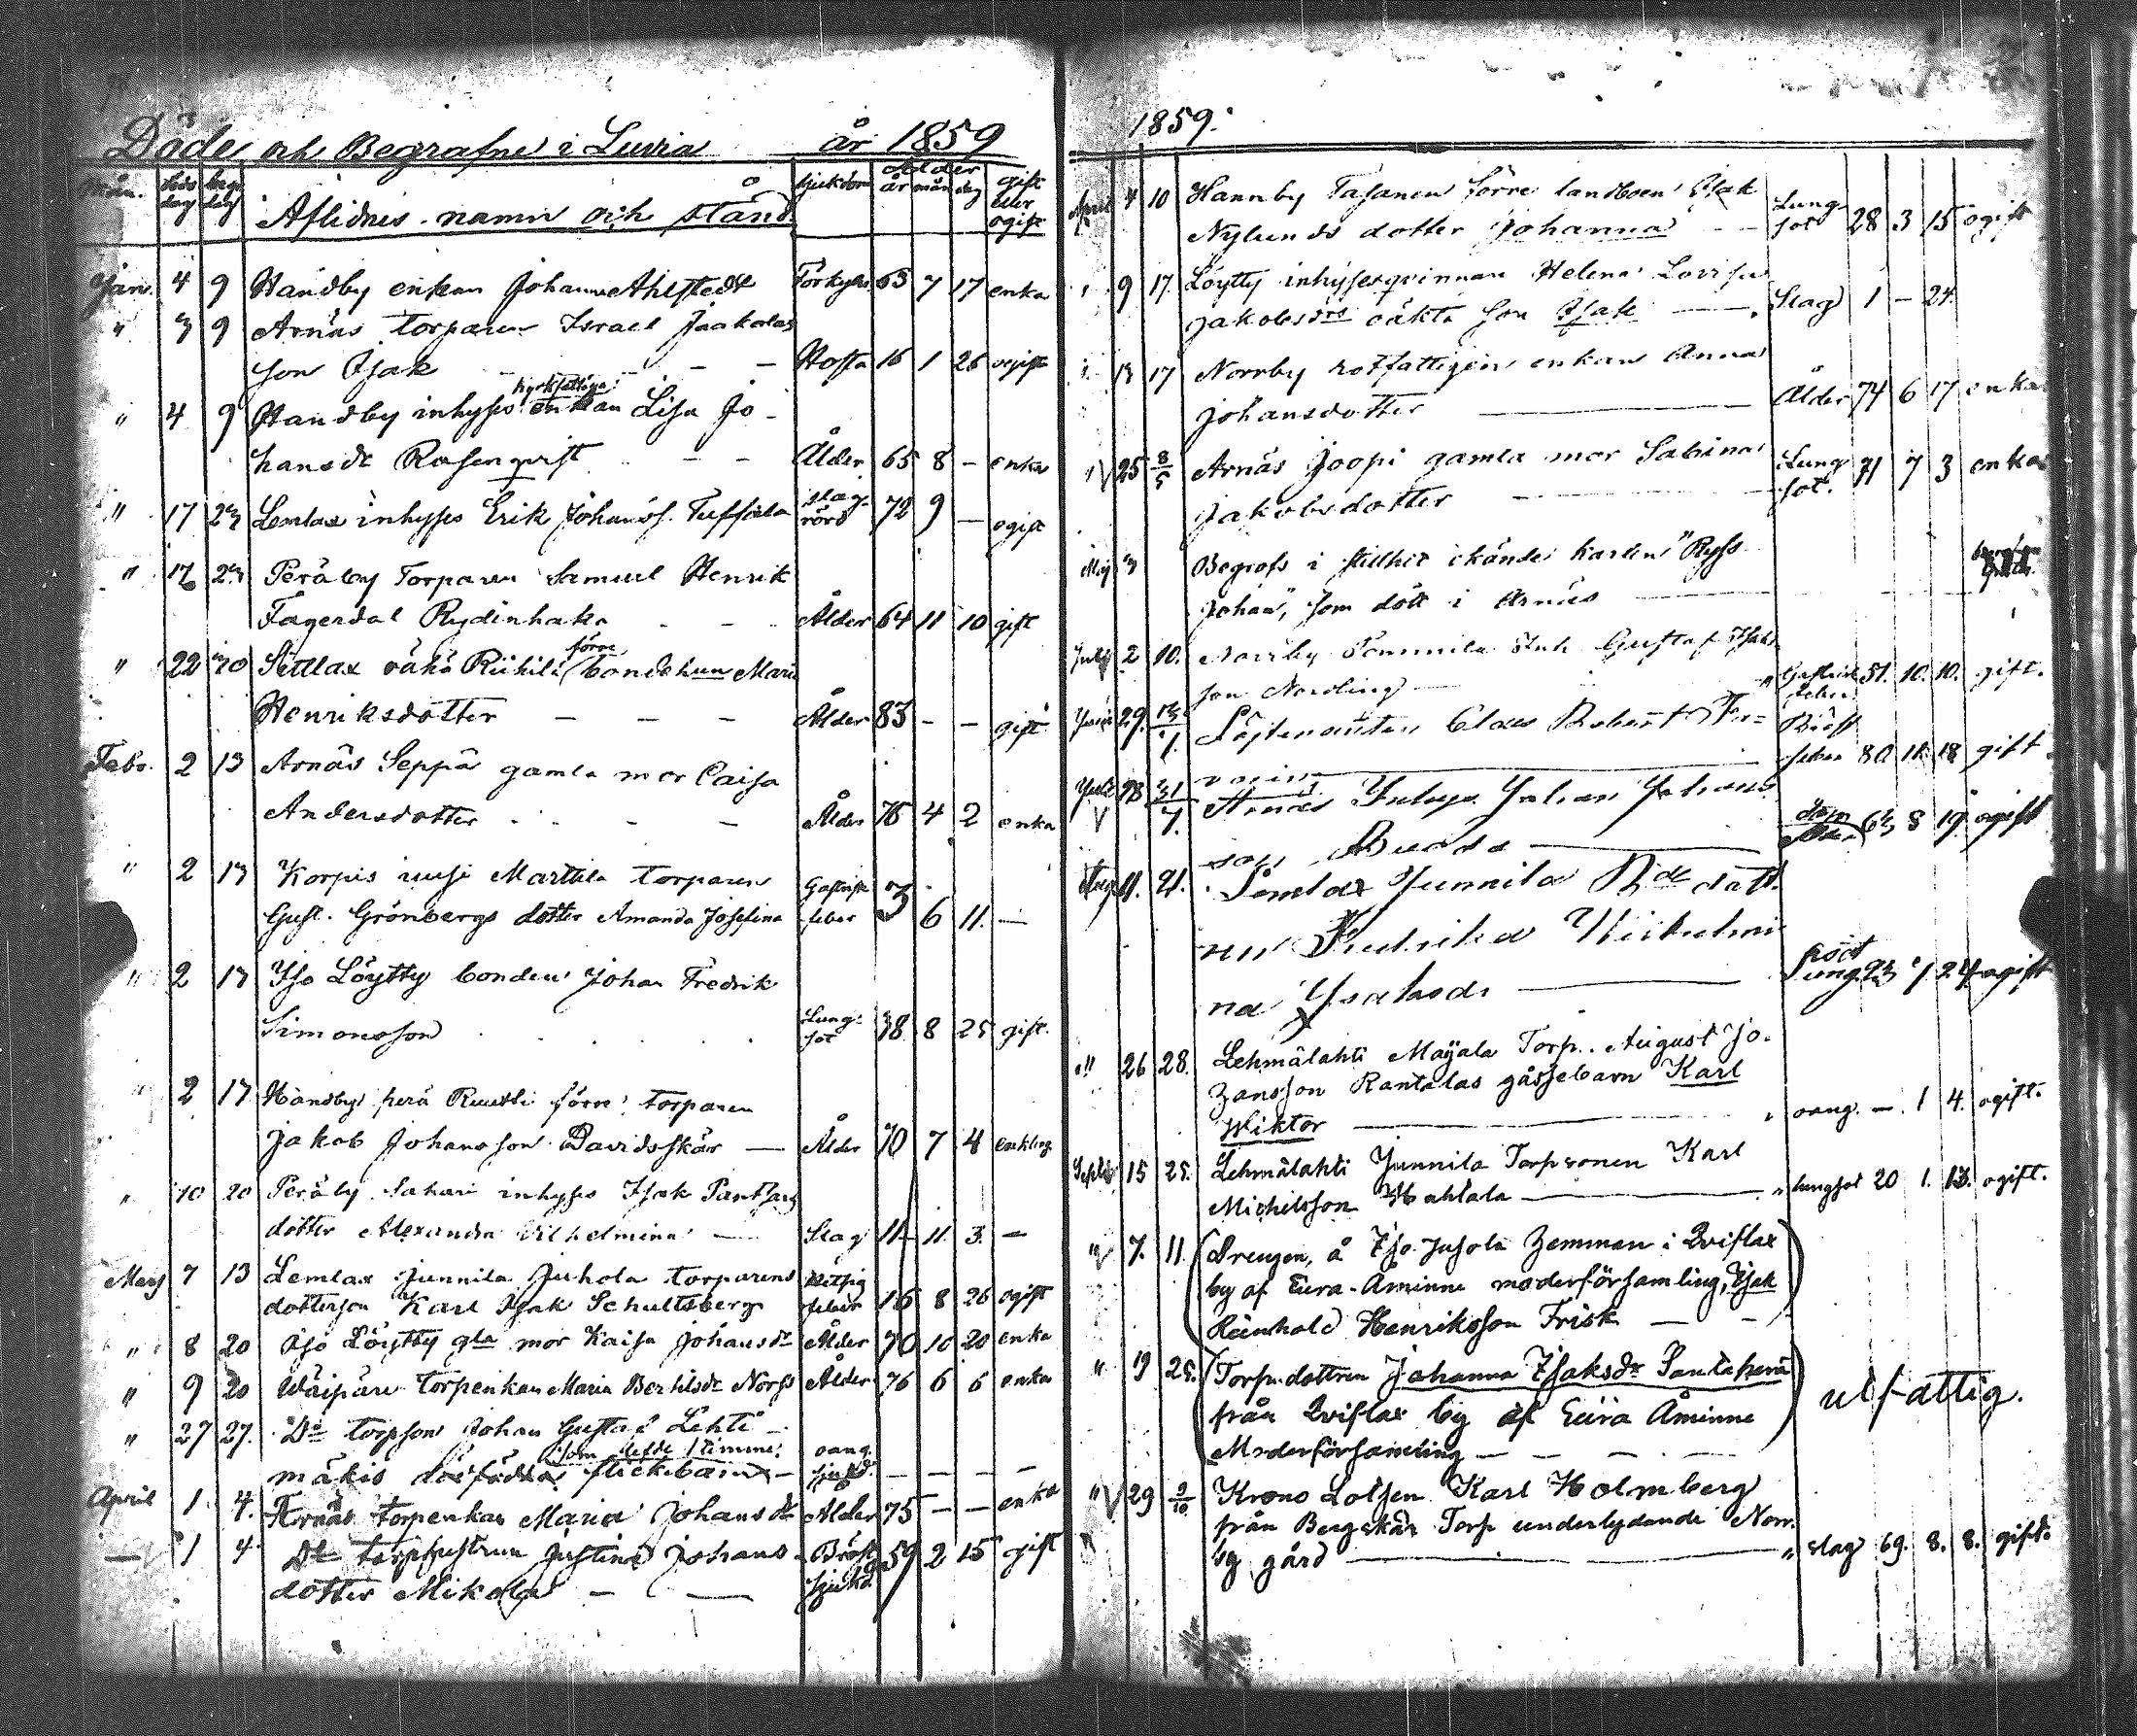 Döde och Begrafne i Luvia år 1859
Mån. döds dag begr. dag Aflidnes namn och stånd sjukdom Ålder år mån dag gift eller ogift
Jan. 4 9 Handby enkan Johanna Ahlstedt Förkyln. 63 7 17 enka
" 3 9 Arnäs torparen Israel Jaakolas
son Isak — — — Hosta 16 1 26 ogift
kyrkfattiga
" 4 9 Handby inhyses enkan Lisa Jo-
hansdr Rosenqvist — — Ålder 65 8 — enka
" 17 23 Lemlax inhyses Erik Johanss. Tuffsala slag-rörd 72 9 — ogift
" 17 23 Peräby Torparen Samuel Henrik
Fagerdal Rydinhaka — — Ålder 64 11 10 gift
förre
" 22 30 Sittlax Riihilä bondehun Maria
Henriksdotter — — — Ålder 83 — — gift
Febr. 2 13 Arnäs Seppä gamla mor Caisa
Andersdotter — — Ålder 76 4 2 enka
" 2 13 Korpis uusi Marttila torparen
Gust. Grönbergs dotter Amanda Josefina Gastrisk feber 3 6 11. —
" 2 13 Iso Löytty bonden Johan Fredrik
Simonsson Lung-sot 38 8 25 gift.
" 2 17 Handby perä Ruutti förre torparen
Jakob Johansson Davidsskär — Ålder 70 7 4 enkling
" 10 20 Peräby Sahari inhyses Isak Pantsars
dotter Alexandra Vilhelmina — Slag 11 11. 3. —
Mars 7 13 Lemlax Junnila Juhola torparens
dotterson Karl Isak Schultsberg feber 16 8 26 ogift
" 8 20 Iso Löytty gla mor Kaisa Johansdr Ålder 70 10 20 enka
" 9 20 Wäipäre Torpenkan Maria Bertilsdr Norrs Ålder 76 6 6 enka
" 27 27. Do torpson Johan Gustaf Lehti-
som lefde 1 timme
mäkis flickebarn — oang. sjukd. — — — —
April 1 4. Arnäs torpenkan Maria Johansdr Ålder 75 — — enka
— 1 4 Do torphustrun Justina Johans-
dotter Mikola — — Bröst sjukd. 59 2 15 gift
1859.
April 4 10 Hannby Tasanen förre landboen Isak
Nylunds dotter Johanna — — Lung-sot 28 3 15 ogift
" 9 17 Löytty inhysesqvinnan Helena Lovisa
Jakobsdrs oäkta son Isak — Slag 1 — 24
" 13 17 Norrby rotfattigen enkan Anna
Johansdotter — Ålder 74 6 17 enka
" 25 8/5 Arnäs Joopi gamla mor Sabina
Jakobsdotter — Lung-sot. 71 7 3 enka
Maj 3 Begrofs i stillhet okände karlen "Ryss
Johan", som dött i Arnäs —
July 2 10. Norrby Tommila Inh. Gustaf Isaks
son Nordling — " Gastrisk feber 51. 10. 10. gift.
Juni 29. Löjtenanten Claes Robert Bröst
feber 80 11. 18 gift.
Juli 23 31/7. Arnäs Inhys. Johan Johans
son — Ålder 63 8 19. ogift
Aug. 11. 21. Lemlax Junnila Bde dott.
ren Fredrika Wilhelmi
na Isaksdr — Lungsot 23 24 ogift
" 26 28. Lehmälahti Majala Torp. August Jo-
hansson Rantalas gossebarn Karl
Wiktor — " oang. — 1 4. ogift.
Septbr 15 25. Lehmälahti Junnila Torpsonen Karl
Michelsson Hahtala — " lungsot 20 1. 13. ogift.
" 7. 11. (Drengen, å Iso Jusola Hemman i Qviflax
by af Eura-Åminne moderförsamling, Isak
Reinhold Henriksson Frisk — —
" 19 25. (Torp.dottren Johanna Isaksdr Santaperä
från Qviflax by af Eura Åminne
Moderförsamling — — — — ) utfattig.
" 29 2/10 Krono Lotsen Karl Holmberg
från Bergskär Torp underlydande Norr-
by gård — " slag 69. 8. 8. gift.